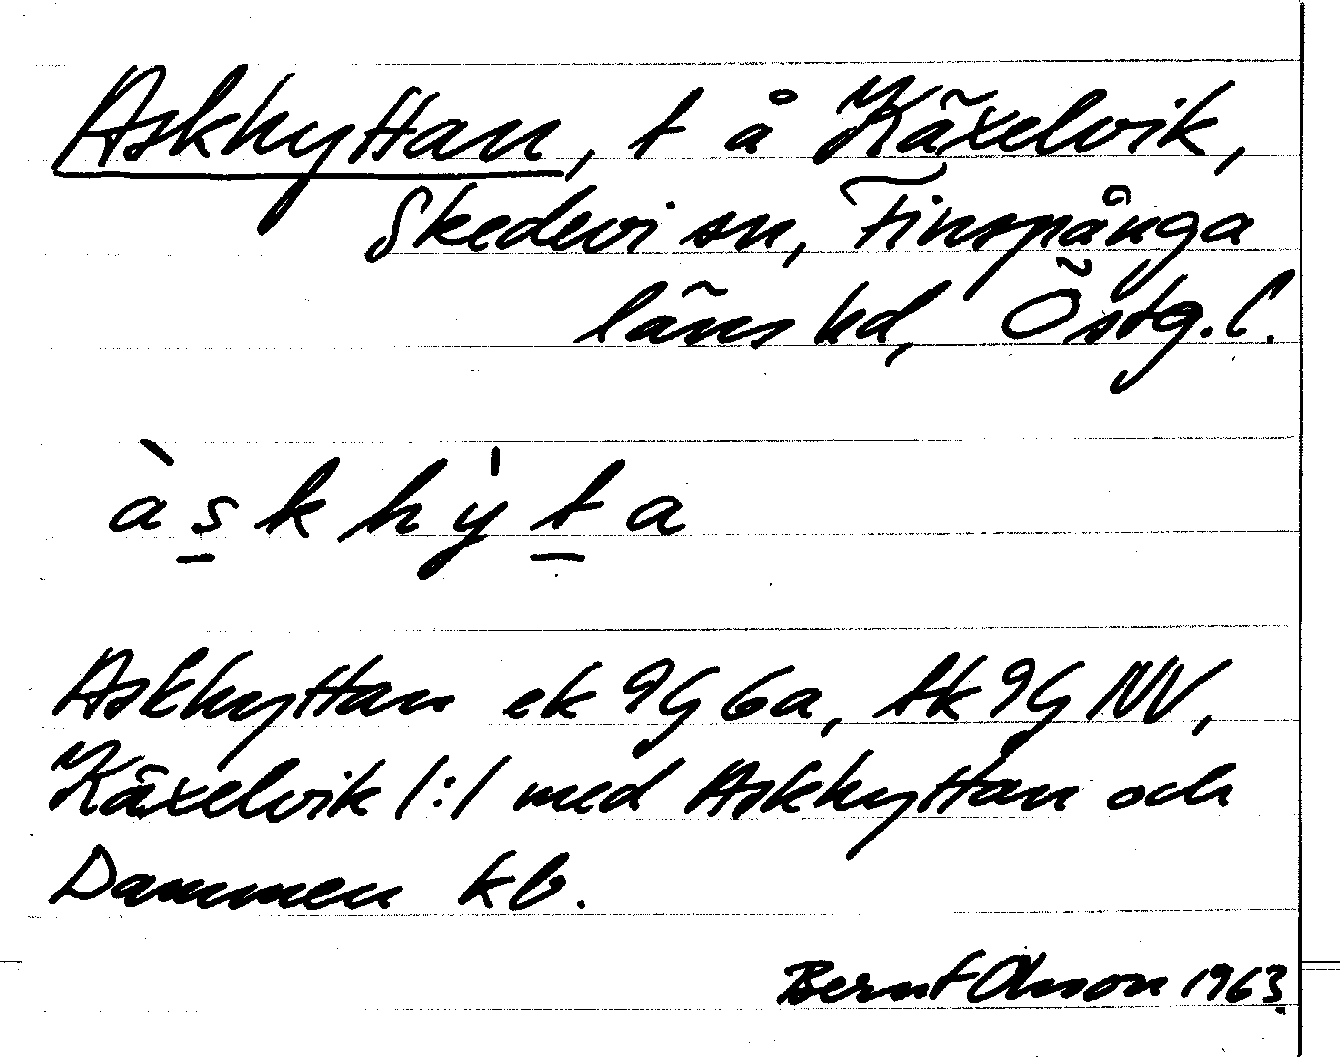 Askhyttan, t å Käxelvik,
Skedevi sn, Finspånga
läns hd, Östg. l.
àskhy̍ta
Askhyttan ek 9G 6a, tk 9G NV,
Käxelvik /:/ med Askhyttan och
Dammen kb.
Bernt Olsson 1963